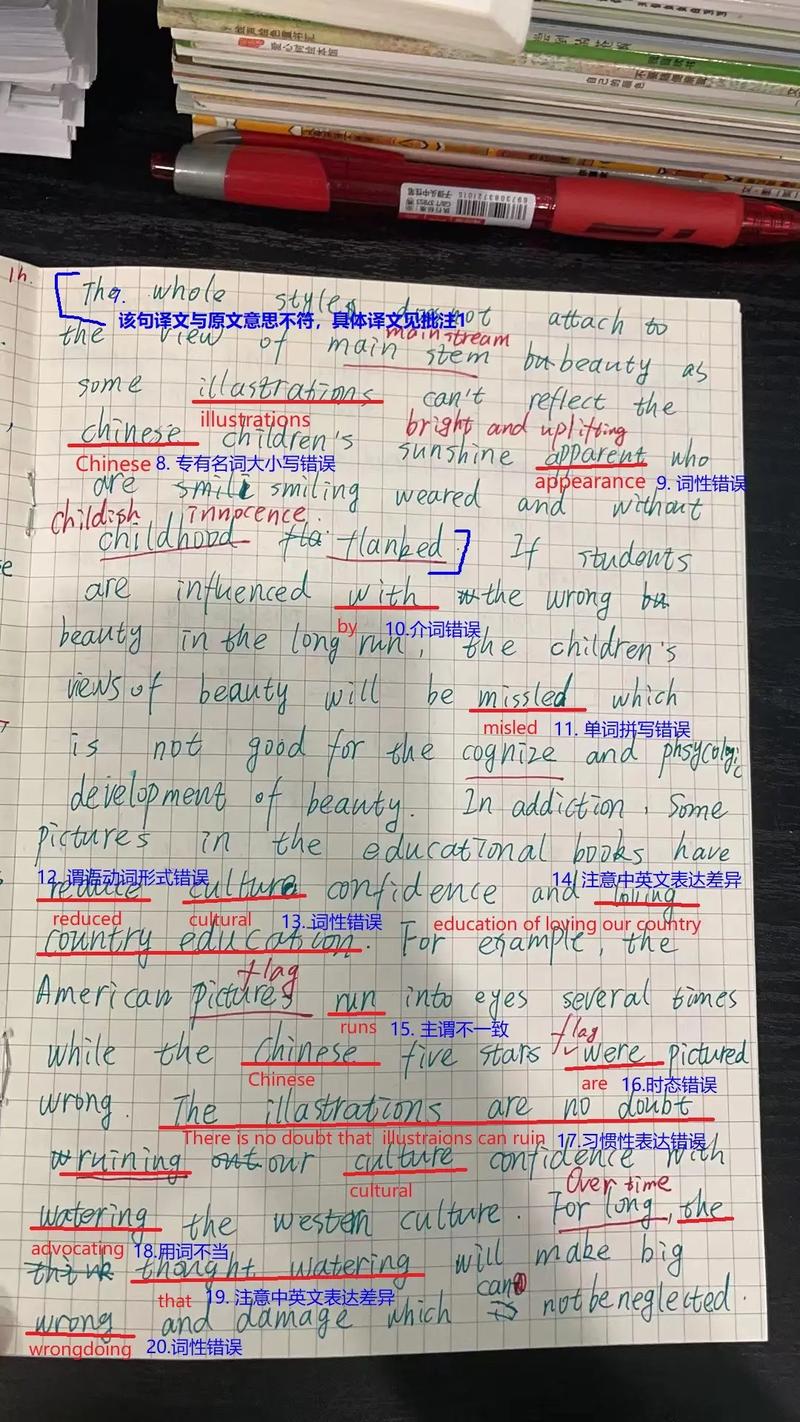 爱心树绘本馆
自己的颜色
6973083721015
1h.
The whole style not attach to
7.
该句译文与原文意思不符，具体译文见批注1
mainstream
the view of main stem beauty as
some illastrations can't reflect the
illustrations
bright and uplifting
chinese children's sunshine apparent who
Chinese 8. 专有名词大小写错误
appearance 9. 词性错误
are smiling weared and without
childish innocence.
childhood flanked. If students
are influenced with the wrong
by 10.介词错误
beauty in the long run, the children's
views of beauty will be missled which
misled 11. 单词拼写错误
is not good for the cognize and phsycologic
development of beauty. In addiction, Some
pictures in the educational books have
12. 谓语动词形式错误
14. 注意中英文表达差异
reduce culture confidence and loving
reduced cultural 13. 词性错误 education of loving our country
country education. For example, the
flag
American pictures run into eyes several times
runs 15. 主谓不一致
flag
while the chinese five stars were pictured
Chinese are 16.时态错误
wrong. The illastrations are no doubt
There is no doubt that illustraions can ruin 17.习惯性表达错误
ruining our culture confidence with
cultural
Over time
watering the western culture. For long, the
advocating 18.用词不当
thought watering will make big
that 19. 注意中英文表达差异
can
wrong and damage which not be neglected.
wrongdoing 20.词性错误